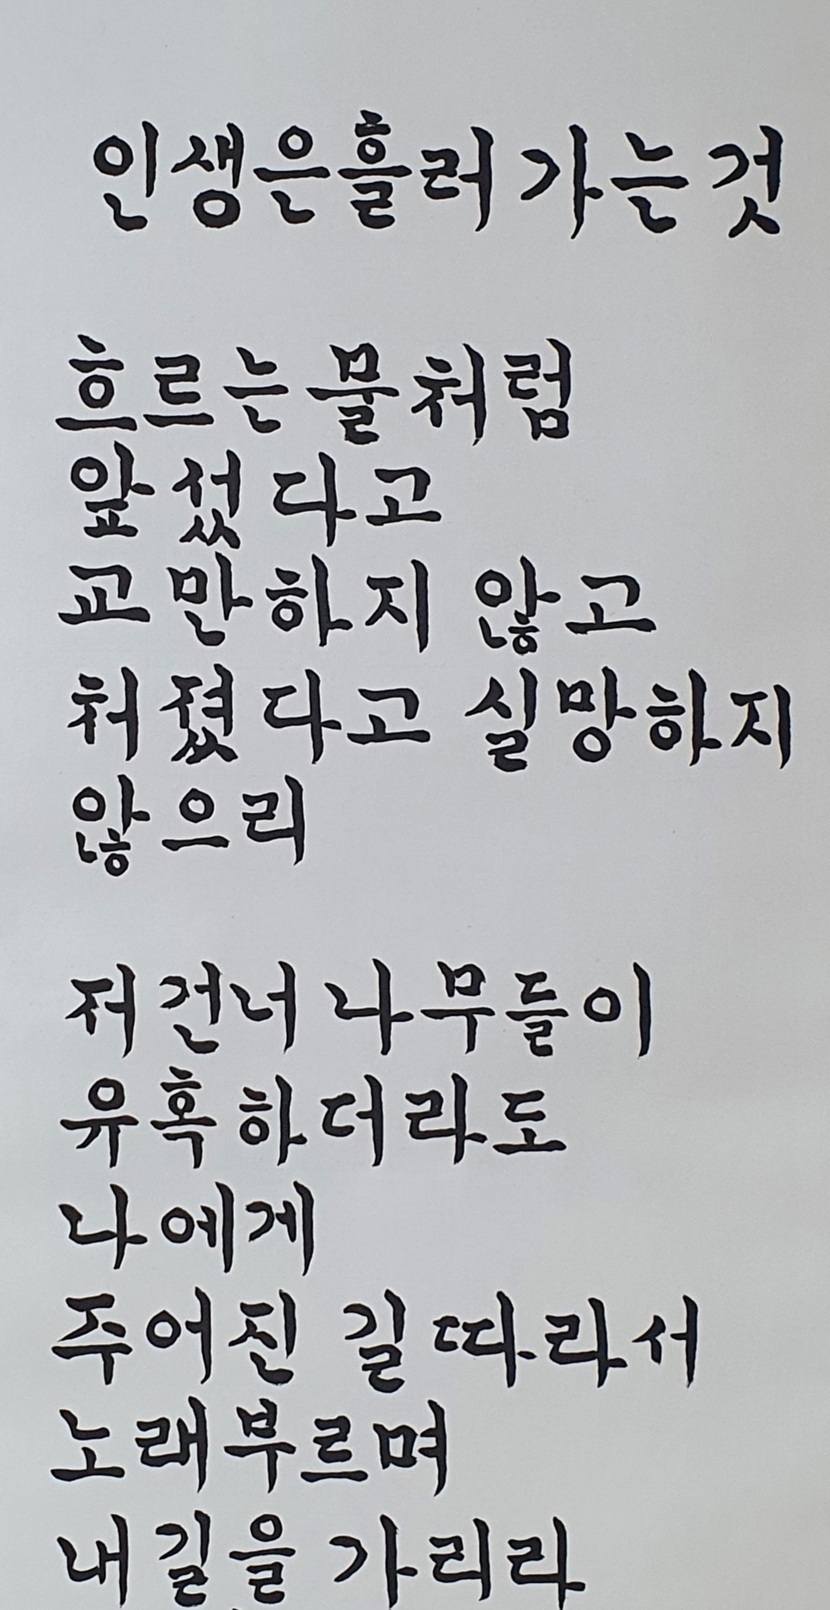 인생은흘러 가는 것
흐르는 물처럼
앞섰다고
교만하지 않고
처졌다고 실망하지
않으리
저 건너 나무들이
유혹하더라도
나에게
주어진 길 따라서
노래부르며
내 길을 가리라